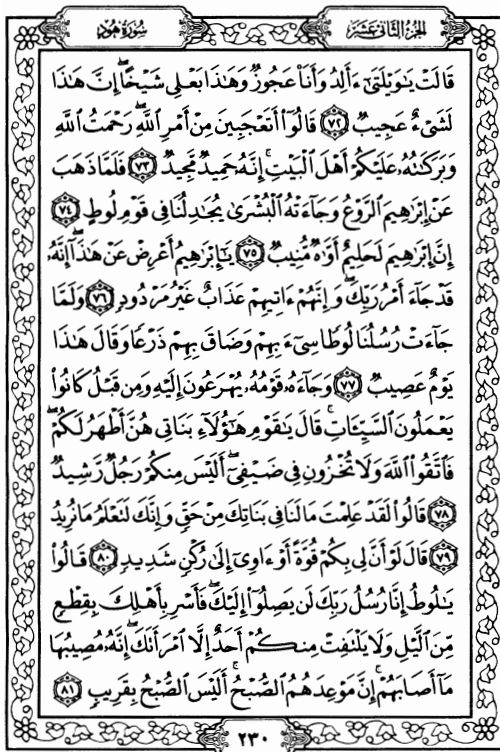 الجزء الثانى عشر
سورة هود
قَالَتْ يَٰوَيْلَتَىٰٓ ءَأَلِدُ وَأَنَا۠ عَجُوزٌ وَهَٰذَا بَعْلِى شَيْخًا ۖ إِنَّ هَٰذَا
لَشَىْءٌ عَجِيبٌ ٧٢ قَالُوٓا۟ أَتَعْجَبِينَ مِنْ أَمْرِ ٱللَّهِ ۖ رَحْمَتُ ٱللَّهِ
وَبَرَكَٰتُهُۥ عَلَيْكُمْ أَهْلَ ٱلْبَيْتِ ۚ إِنَّهُۥ حَمِيدٌ مَّجِيدٌ ٧٣ فَلَمَّا ذَهَبَ
عَنْ إِبْرَٰهِيمَ ٱلرَّوْعُ وَجَآءَتْهُ ٱلْبُشْرَىٰ يُجَٰدِلُنَا فِى قَوْمِ لُوطٍ ٧٤
إِنَّ إِبْرَٰهِيمَ لَحَلِيمٌ أَوَّٰهٌ مُّنِيبٌ ٧٥ يَٰٓإِبْرَٰهِيمُ أَعْرِضْ عَنْ هَٰذَآ ۖ إِنَّهُۥ
قَدْ جَآءَ أَمْرُ رَبِّكَ ۖ وَإِنَّهُمْ ءَاتِيهِمْ عَذَابٌ غَيْرُ مَرْدُودٍ ٧٦ وَلَمَّا
جَآءَتْ رُسُلُنَا لُوطًا سِىٓءَ بِهِمْ وَضَاقَ بِهِمْ ذَرْعًا وَقَالَ هَٰذَا
يَوْمٌ عَصِيبٌ ٧٧ وَجَآءَهُۥ قَوْمُهُۥ يُهْرَعُونَ إِلَيْهِ وَمِن قَبْلُ كَانُوا۟
يَعْمَلُونَ ٱلسَّيِّـَٔاتِ ۚ قَالَ يَٰقَوْمِ هَٰٓؤُلَآءِ بَنَاتِى هُنَّ أَطْهَرُ لَكُمْ ۖ
فَٱتَّقُوا۟ ٱللَّهَ وَلَا تُخْزُونِ فِى ضَيْفِىٓ ۖ أَلَيْسَ مِنكُمْ رَجُلٌ رَّشِيدٌ
٧٨ قَالُوا۟ لَقَدْ عَلِمْتَ مَا لَنَا فِى بَنَاتِكَ مِنْ حَقٍّ وَإِنَّكَ لَتَعْلَمُ مَا نُرِيدُ
٧٩ قَالَ لَوْ أَنَّ لِى بِكُمْ قُوَّةً أَوْ ءَاوِىٓ إِلَىٰ رُكْنٍ شَدِيدٍ ٨٠ قَالُوا۟
يَٰلُوطُ إِنَّا رُسُلُ رَبِّكَ لَن يَصِلُوٓا۟ إِلَيْكَ ۖ فَأَسْرِ بِأَهْلِكَ بِقِطْعٍ
مِّنَ ٱلَّيْلِ وَلَا يَلْتَفِتْ مِنكُمْ أَحَدٌ إِلَّا ٱمْرَأَتَكَ ۖ إِنَّهُۥ مُصِيبُهَا
مَآ أَصَابَهُمْ ۚ إِنَّ مَوْعِدَهُمُ ٱلصُّبْحُ ۚ أَلَيْسَ ٱلصُّبْحُ بِقَرِيبٍ ٨١
٢٣٠